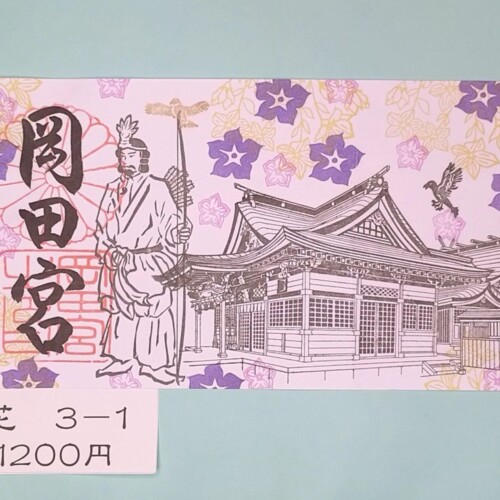 岡田宮
芝 3－1
1200円